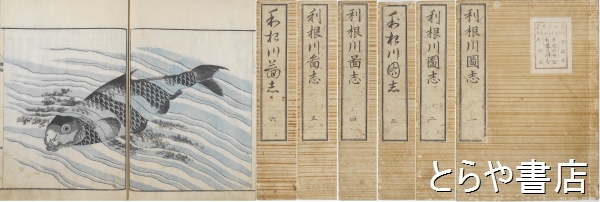 利根川圖志 一
利根川圖志 二
利根川圖志 三
利根川啚志 四
利根川啚志 五
利根川啚志 六
とらや書店